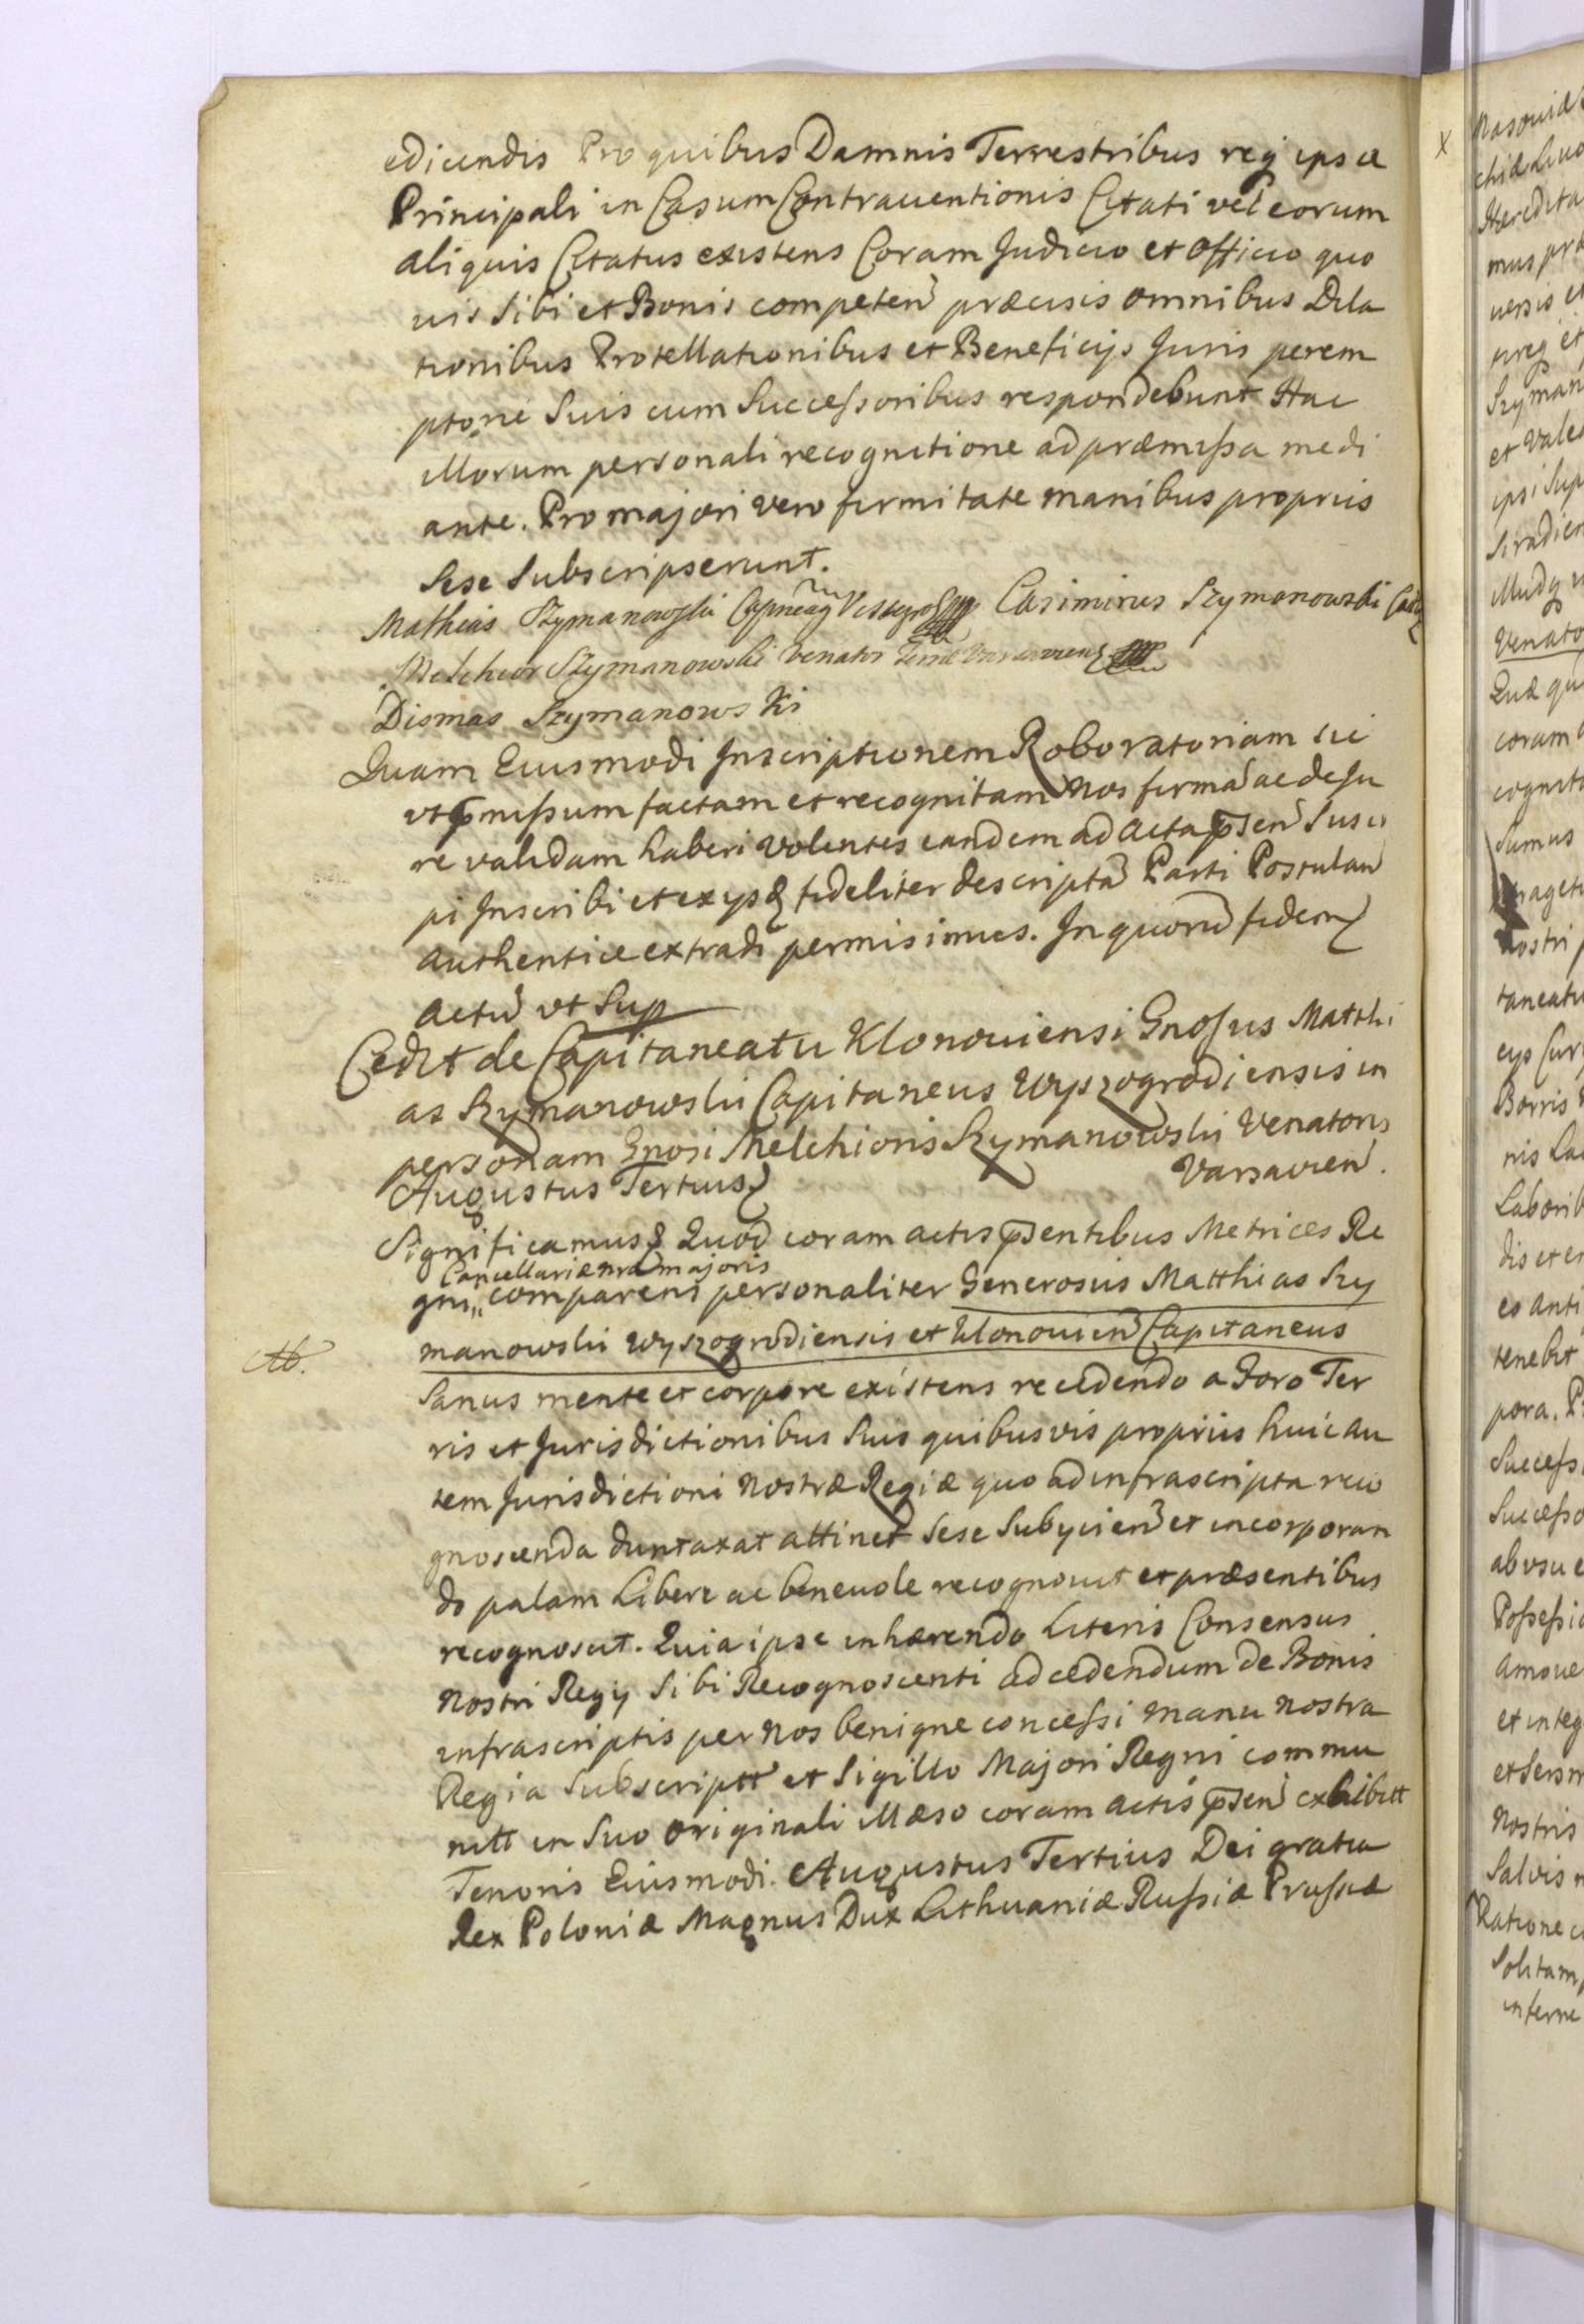 edicendis Pro quibus Damnis Terrestribus req ipsa
Principali in Casum Contrauentionis Citati vel eorum
aliquis Citatus existens Coram Judicio et Officio quo
uis Sibi et Bonis competen præcisis omnibus Dila
tionibus Protellationibus et Beneficijs Juris perem
ptorie Suis cum Successoribus respondebunt Hac
illorum personali recognitione ad præmissa medi
ante. Pro majori vero firmitate manibus propriis
Sese Subscripserunt.
Mathias Szymanowski Casimirus Szymanowski
Melchior Szymanowski Venator Terræ Varsaviens
Dismas Szymanowski
Quam Eiusmodi Inscriptionem Roboratoriam sic
vt pmissum factam et recognitam Nos firma ac de Ju
re validam haberi volentes eandem ad Acta psen Susci
pi Inscribi et ex ijsd fideliter descripta Parti Postulan
authentice extradi permisimus. In quoru fidem
Actu vt Sup
Cedit de Capitaneatu Klonoviensi Gnosus Matthi
as Szymanowski Capitaneus Wyszogrodiensis in
personam Gnosi Melchioris Szymanowski Venatoris
Varsavien.
Augustus Tertius
Significamus Quod coram actis psentibus Metrices Re
Cancellariæ nra majoris
gni comparens personaliter Generosus Matthias Szy
manowski Wyszogrodiensis et Klonovien Capitaneus
Sanus mente et corpore existens recedendo a Foro Ter
ris et Jurisdictionibus Suis quibusvis propriis huic au
tem Jurisdictioni Nostræ Regiæ quo ad infrascripta reco
gnoscenda duntaxat attinet Sese Subijcien et incorporan
do palam Libere ac beneuole recognouit et præsentibus
recognoscit. Quia ipse inhærendo Literis Consensus
Nostri Regij Sibi Recognoscenti ad cedendum de Bonis
infrascriptis per Nos benigne concessi manu Nostra
Regia Subscriptt et Sigillo Majori Regni commu
nitt in Suo Originali illæso coram actis psen exhibitt
Tenoris Eiusmodi. Augustus Tertius Dei gratia
Rex Poloniæ Magnus Dux Lithuaniæ Russiæ Prussiæ